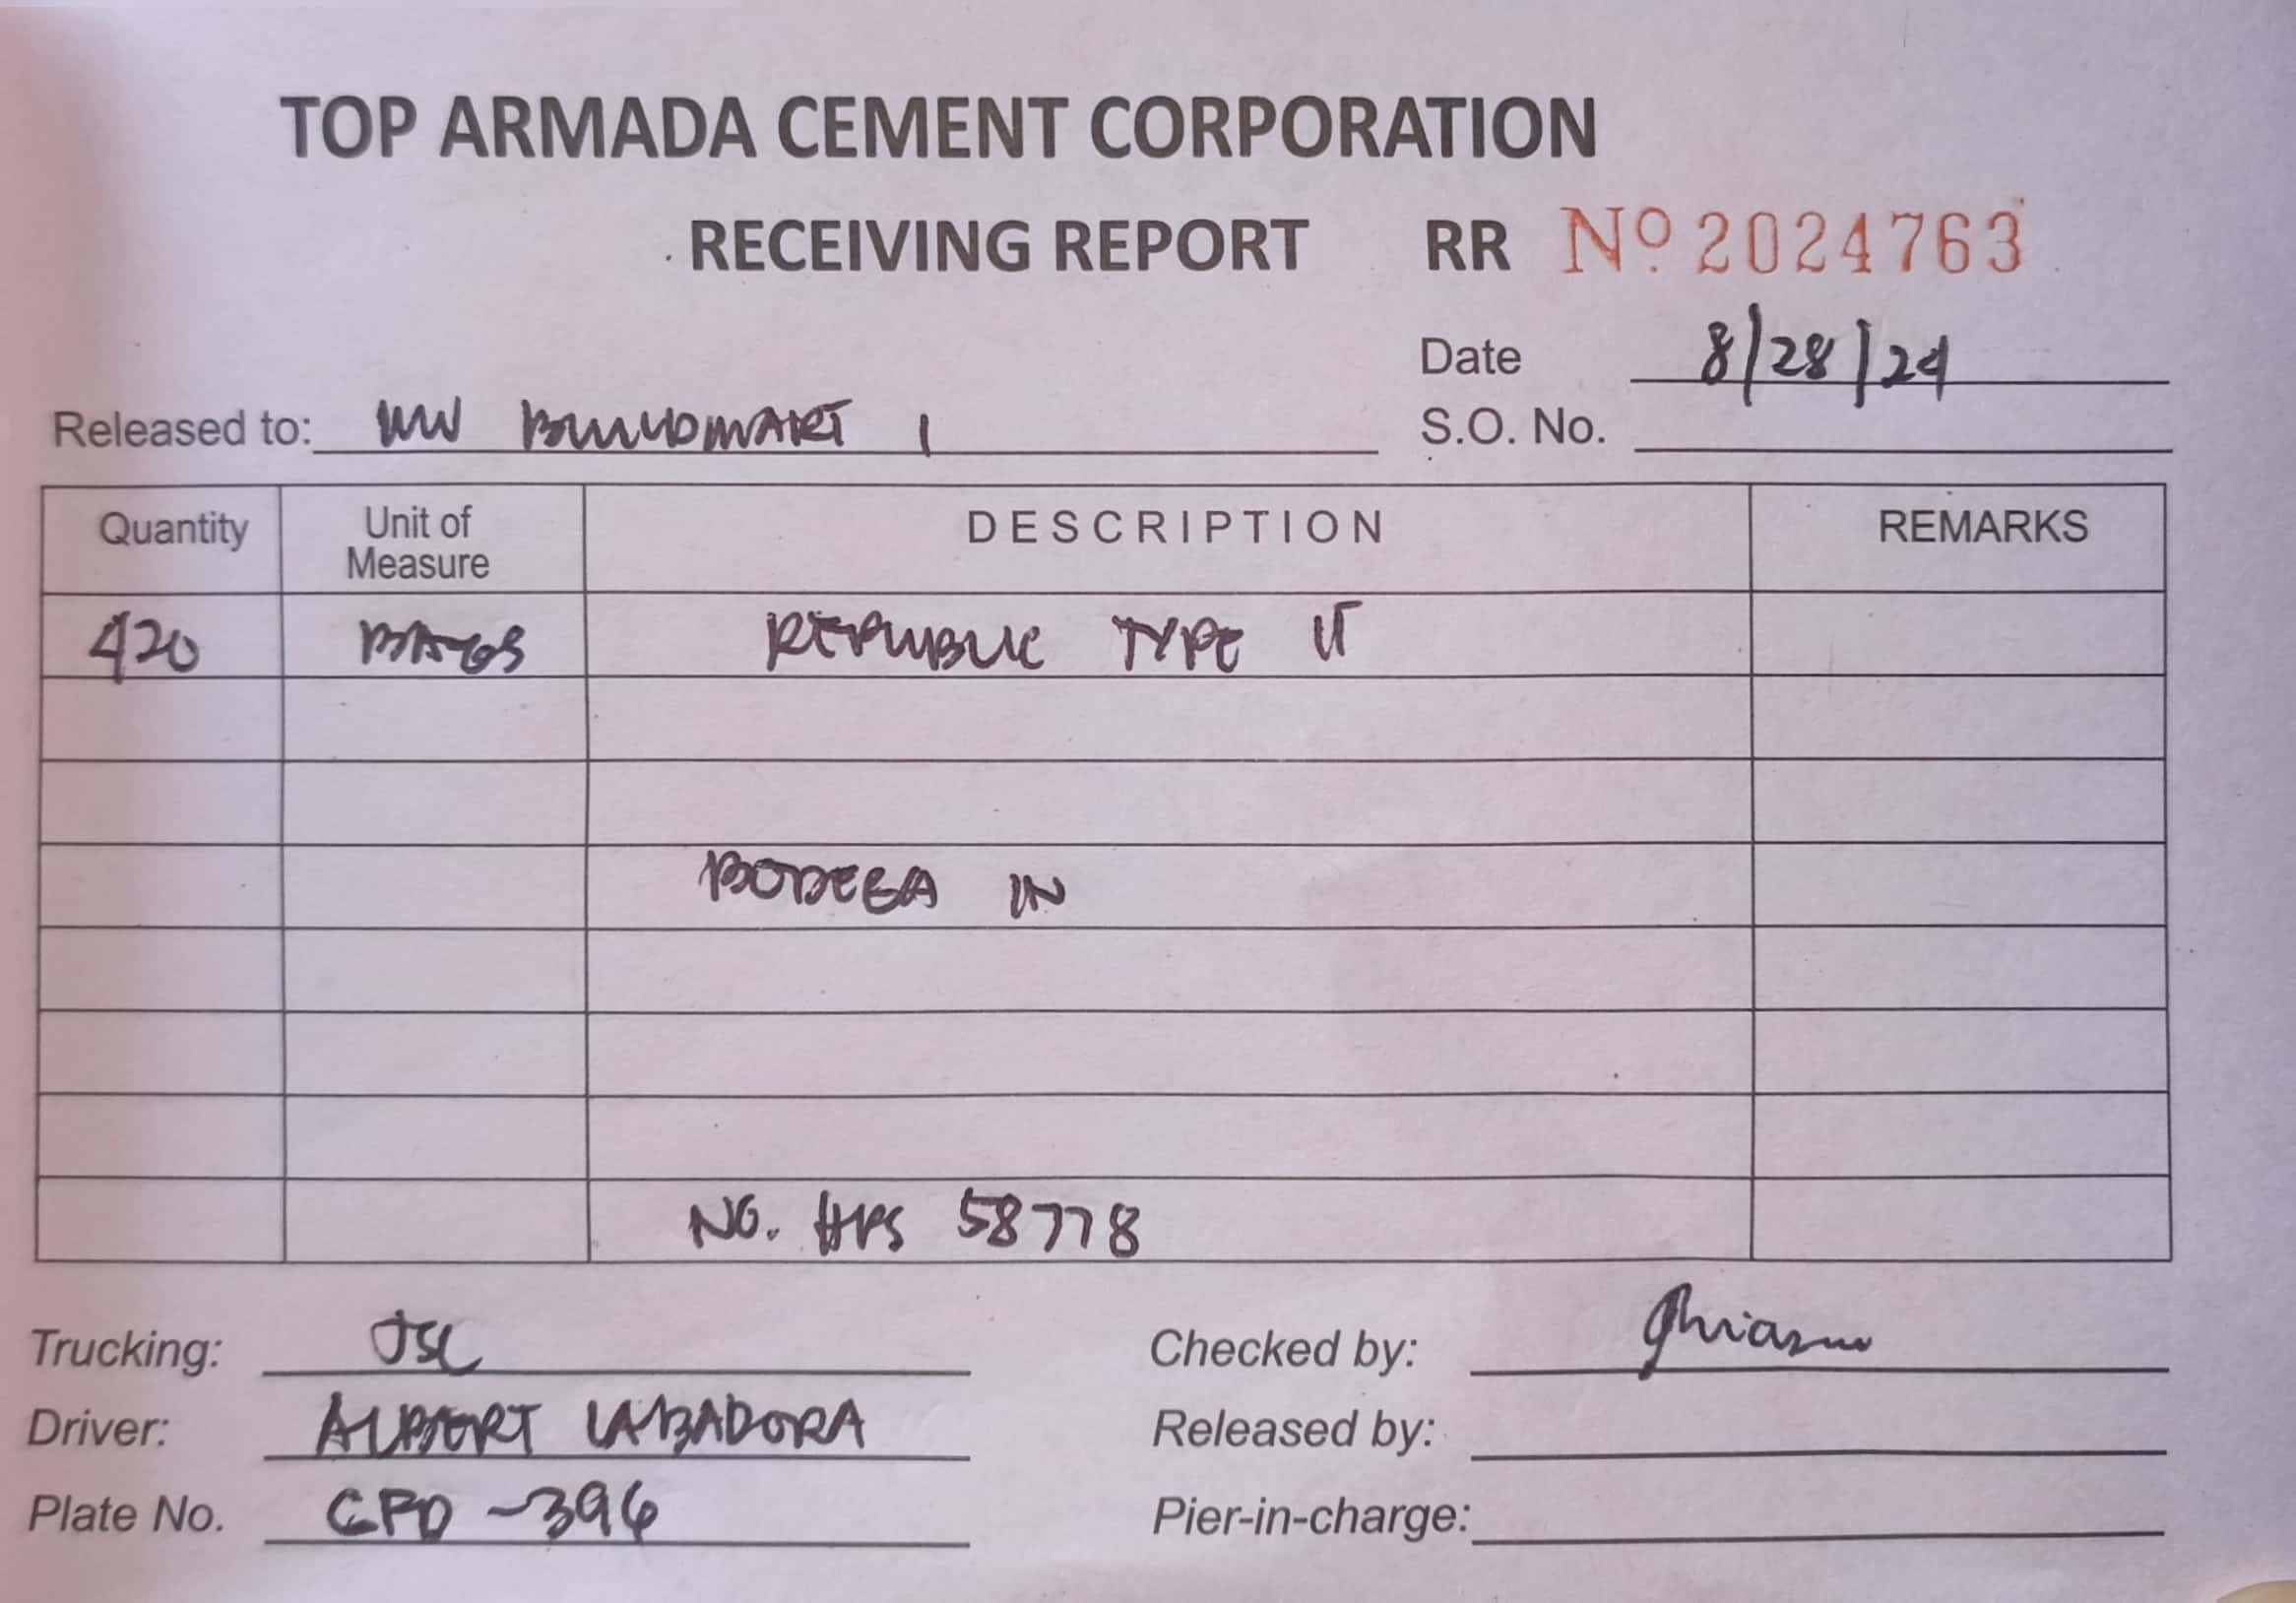 TOP ARMADA CEMENT CORPORATION
RECEIVING REPORT RR Nº 2024763
Date 8/28/24
Released to: BUILDMART 1
S.O. No.
Quantity Unit of Measure DESCRIPTION REMARKS
420 BAGS REPUBLIC TYPE
BODEGA IN
NO. 58778
Trucking: JSC
Checked by:
Driver: ALBERT LABADORA
Released by:
Plate No. CPD-396
Pier-in-charge: